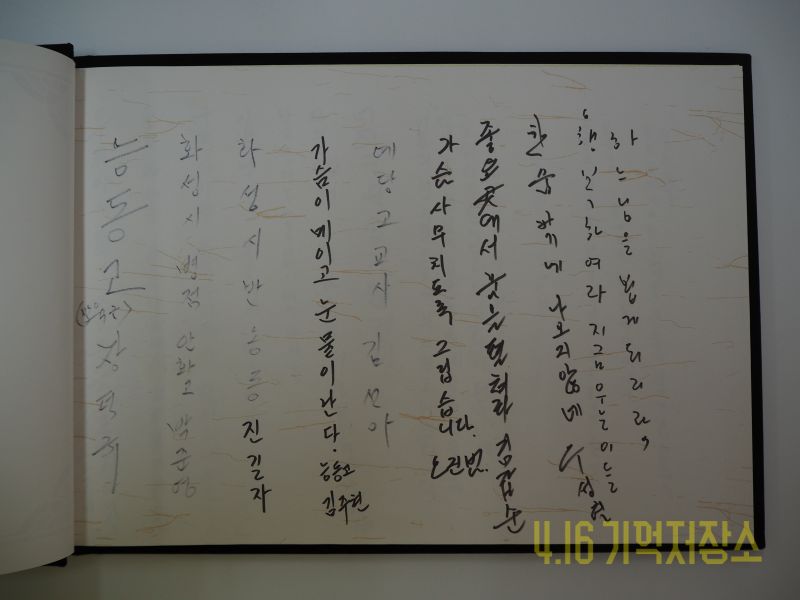 능동고
화성시 병점 안화고 박준영
화성시 반송동 진길자
가슴이 메이고 눈물이 난다. 능동고 김주현
예당고교사 김선아
가슴 사무치도록 그립습니다.
좋은곳에서 펼쳐라 김점순
나오지않네
"행복하여라 지금 우는 이들
하느님을 뵙게되리라,
4.16 기억저장소